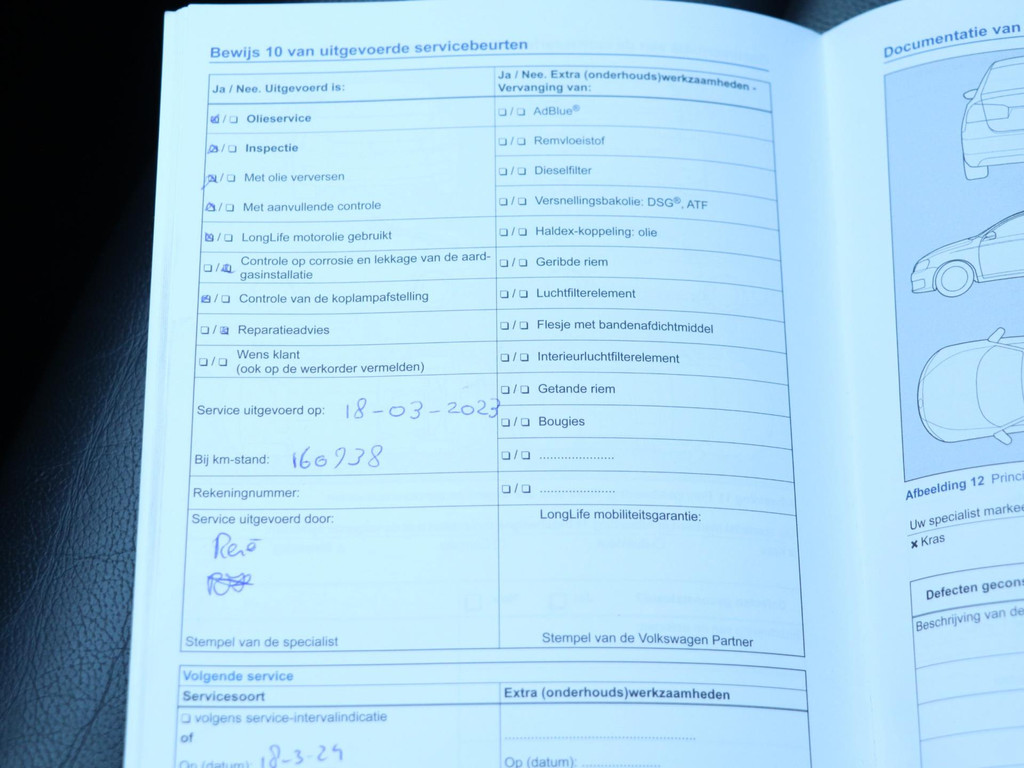 Bewijs 10 van uitgevoerde servicebeurten
Ja / Nee. Uitgevoerd is:
Olieservice
Inspectie
Met olie verversen
Met aanvullende controle
LongLife motorolie gebruikt
Controle op corrosie en lekkage van de aard-
gasinstallatie
Controle van de koplampafstelling
Reparatieadvies
Wens klant
(ook op de werkorder vermelden)
Service uitgevoerd op: 18-03-2023
Bij km-stand: 160938
Rekeningnummer:
Service uitgevoerd door:
René
Stempel van de specialist
Ja / Nee. Extra (onderhouds)werkzaamheden -
Vervanging van:
AdBlue®
Remvloeistof
Dieselfilter
Versnellingsbakolie: DSG®, ATF
Haldex-koppeling: olie
Geribde riem
Luchtfilterelement
Flesje met bandenafdichtmiddel
Interieurluchtfilterelement
Getande riem
Bougies
LongLife mobiliteitsgarantie:
Stempel van de Volkswagen Partner
Volgende service
Servicesoort
volgens service-intervalindicatie
of
Op (datum): 18-3-24
Extra (onderhouds)werkzaamheden
Op (datum):
Documentatie van
Afbeelding 12 Princi
Uw specialist markee
× Kras
Defecten gecons
Beschrijving van de